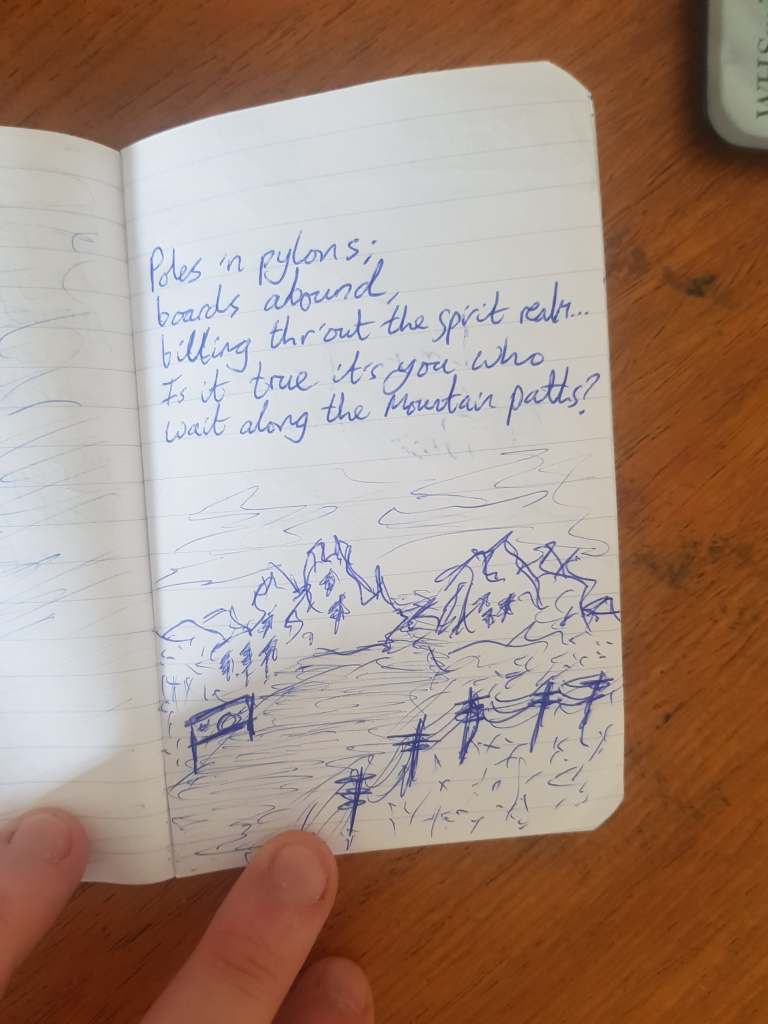 Poles in pylons;
boards abound,
billing thr'out the spirit realm...
Is it true it's you who
wait along the Mountain paths?
WHIS